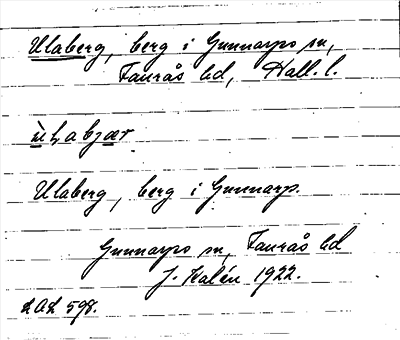 Ulaberg, berg i Gunnarps sn,
Faurås hd, Hall. l.
ùLabjær
Ulaberg, berg i Gunnarp.
Gunnarps sn, Faurås hd
J. Kalén 1922.
LAL 598.